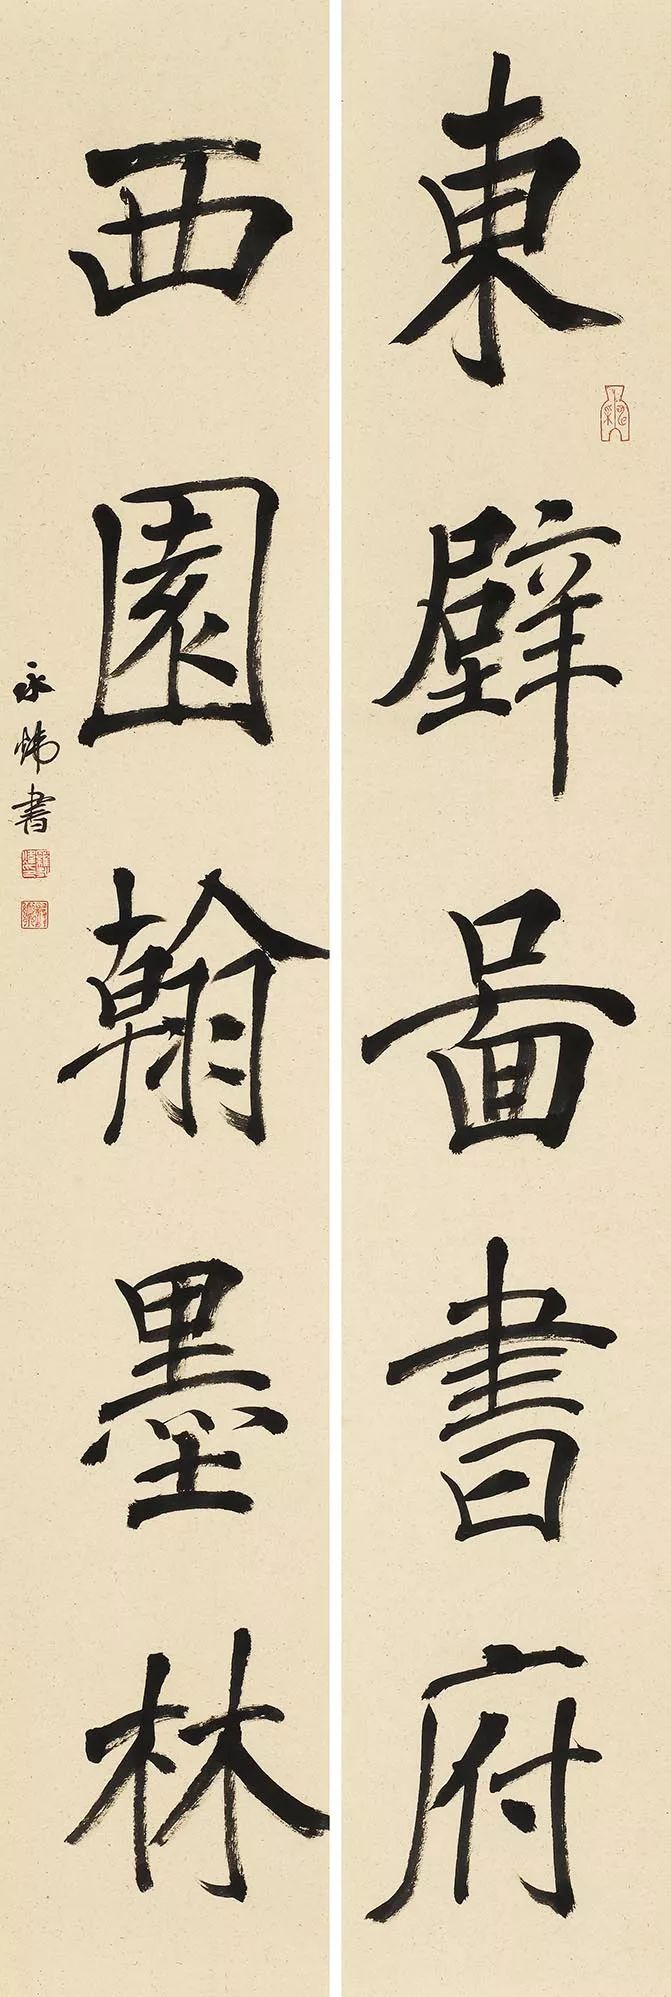 東壁啚書府
西園翰墨林
永炜書